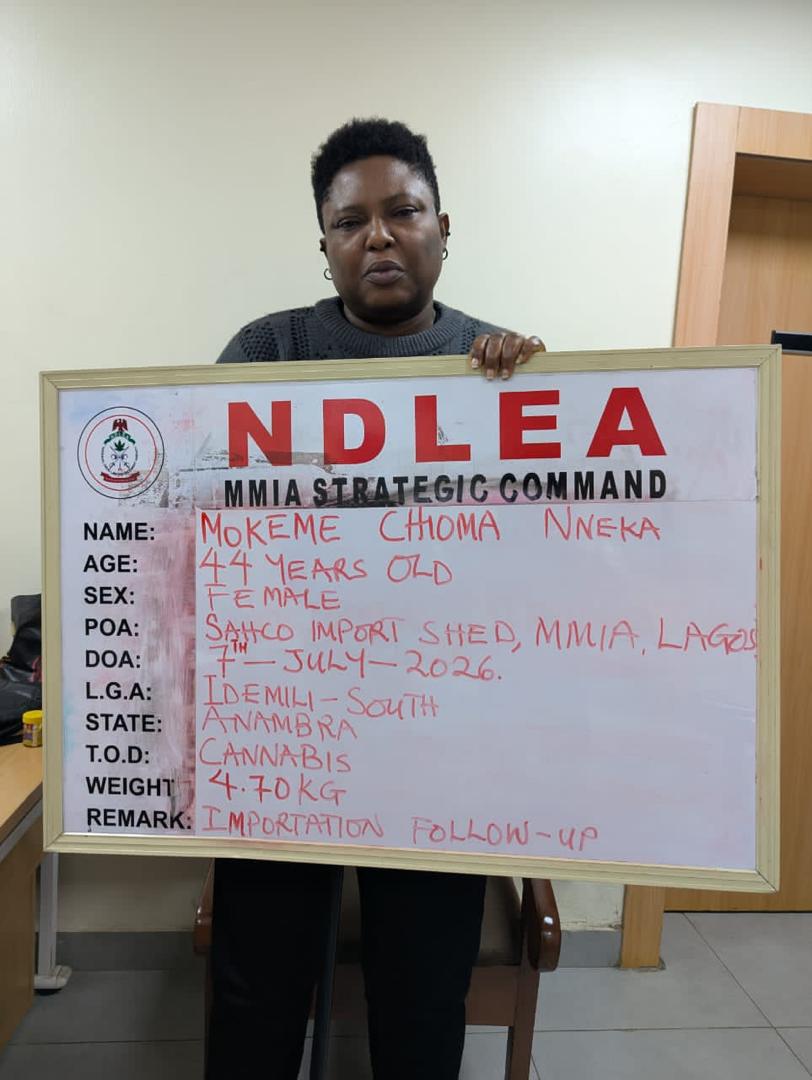 NDLEA
MMIA STRATEGIC COMMAND
NAME: MOKEME CHIOMA NNEKA
AGE: 44 YEARS OLD
SEX: FEMALE
POA: SAHCO IMPORT SHED, MMIA, LAGOS
DOA: 7TH - JULY - 2026.
L.G.A: IDEMILI - SOUTH
STATE: ANAMBRA
T.O.D: CANNABIS
WEIGHT 4.70KG
REMARK: IMPORTATION FOLLOW-UP